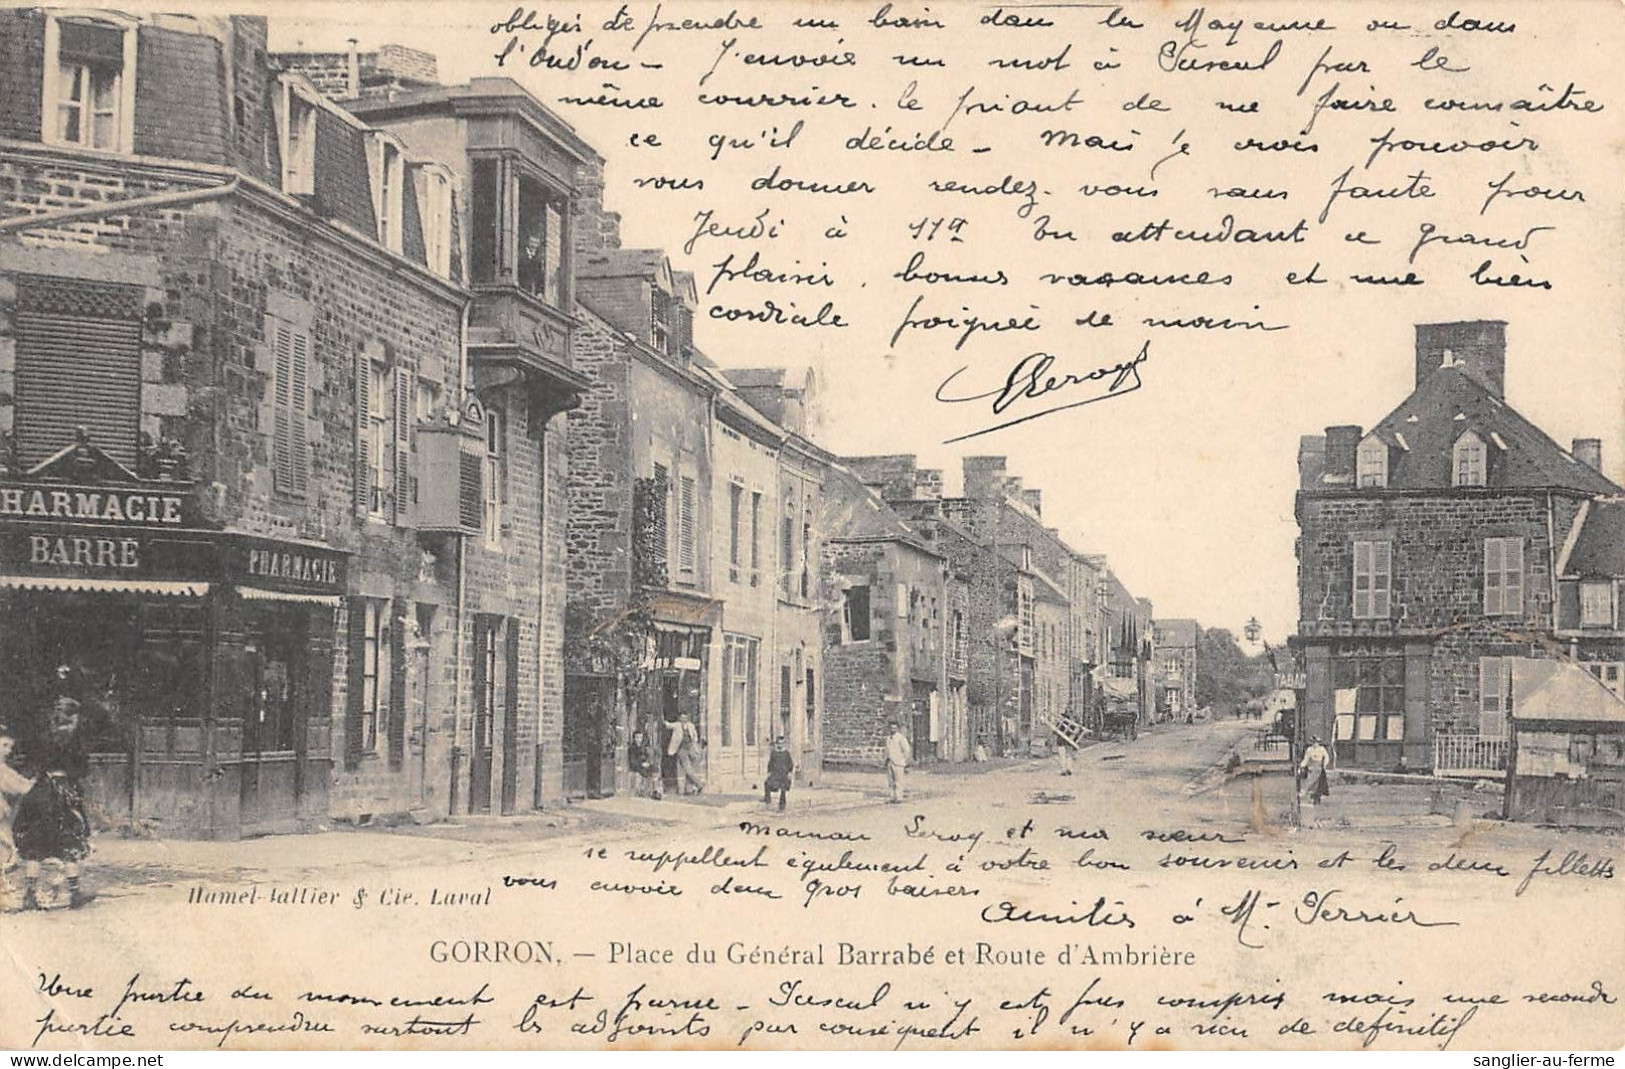 obligés de prendre un bain dans la Mayenne ou dans
l'Oudon - J'envoie un mot à Pascal par le
même courrier. le priant de me faire connaître
ce qu'il décide - Mais je crois pouvoir
vous donner rendez-vous sans faute pour
Jeudi à 11h En attendant ce grand
plaisir, bonnes vacances et une bien
cordiale poignée de main
Leroy
HARMACIE
BARRÉ
PHARMACIE
CAFÉ
TABAC
maman Leroy et ma sœur
se rappellent également à votre bon souvenir et les deux filletts
vous envoie deux gros baisers
Amitiés à Mr Terrier
Hamel-Jallier & Cie. Laval
GORRON. — Place du Général Barrabé et Route d'Ambrière
Une partie du mouvement est parue - Pascal n'y est pas compris mais une seconde
partie comprendra surtout les adjoints par conséquent il n'y a rien de définitif
sanglier-au-ferme